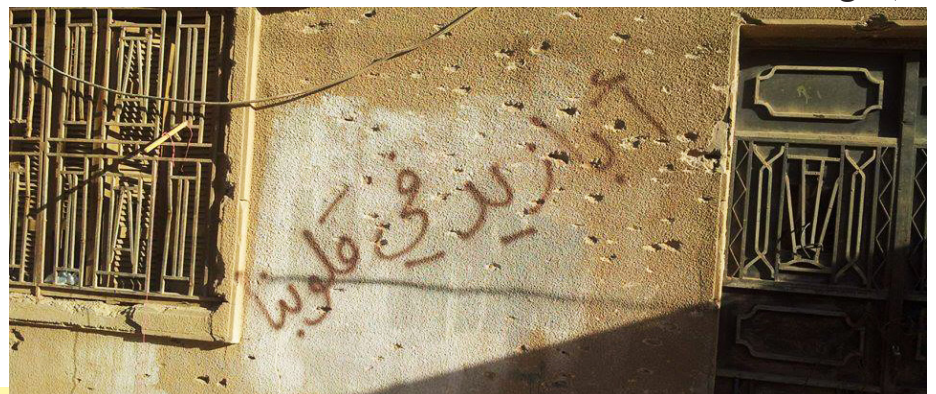 أبازيد في قلوبنا